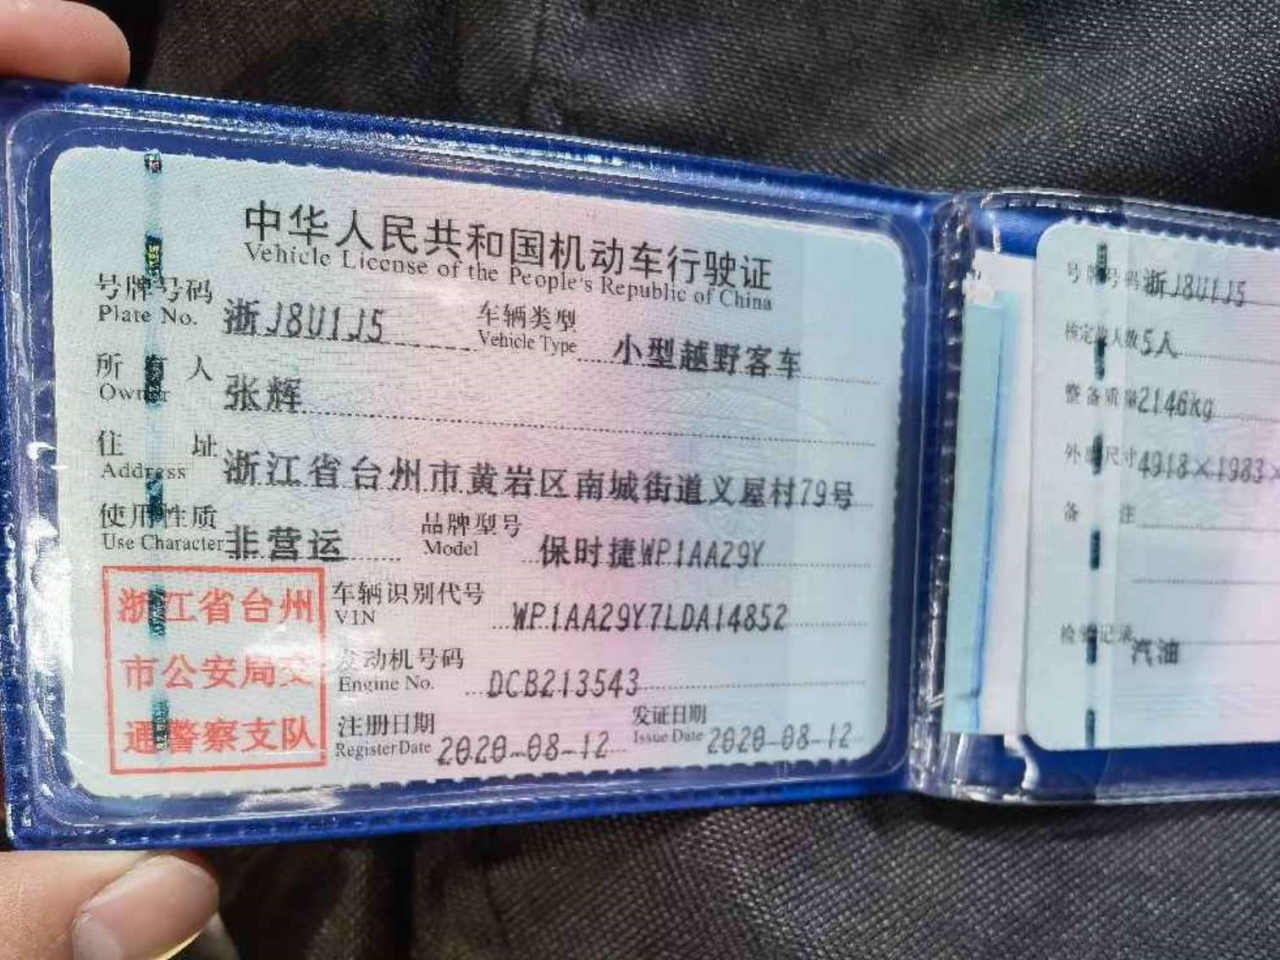 中华人民共和国机动车行驶证
Vehicle License of the People's Republic of China
号牌号码 浙J8U1J5 车辆类型 小型越野客车
Plate No. Vehicle Type
所有人 张辉
Owner
住址 浙江省台州市黄岩区南城街道义屋村79号
Address
使用性质 非营运 品牌型号 保时捷WP1AA29Y
Use Character Model
浙江省台州
市公安局交
通警察支队
车辆识别代号 WP1AA29Y7LDA14852
VIN
发动机号码 DCB213543
Engine No.
注册日期 2020-08-12 发证日期 2020-08-12
Register Date Issue Date
号牌号码 浙J8U1J5
核定载人数 5人
整备质量 2146kg
外廓尺寸 4918×1983×
备注
检验记录
汽油